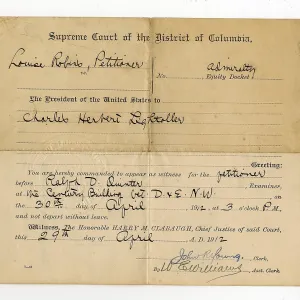 Supreme Court of the District of Columbia.
Louise Robins, Petitioner
vs.
No. Admiralty
Equity Docket
The President of the United States to
Charles Herbert Lightoller
Greeting:
You are hereby commanded to appear as witness for the petitioner
before Ralph D. Quinter Examiner,
at the Century Building bet D & E. N.W
on the 30th day of April 1912, at 3 o'clock P.M.
and not depart without leave.
Witness, The Honorable HARRY M. CLABAUGH, Chief Justice of said Court,
this 29th day of April A. D. 1912
John R. Young, Clerk.
By W E Williams, Asst. Clerk.